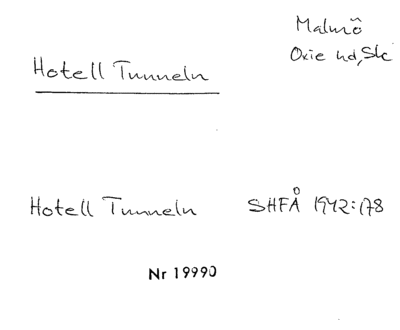 Malmö
Oxie hd, Sk
Hotell Tunneln
Hotell Tunneln SHFÅ 1942:178
Nr 19990